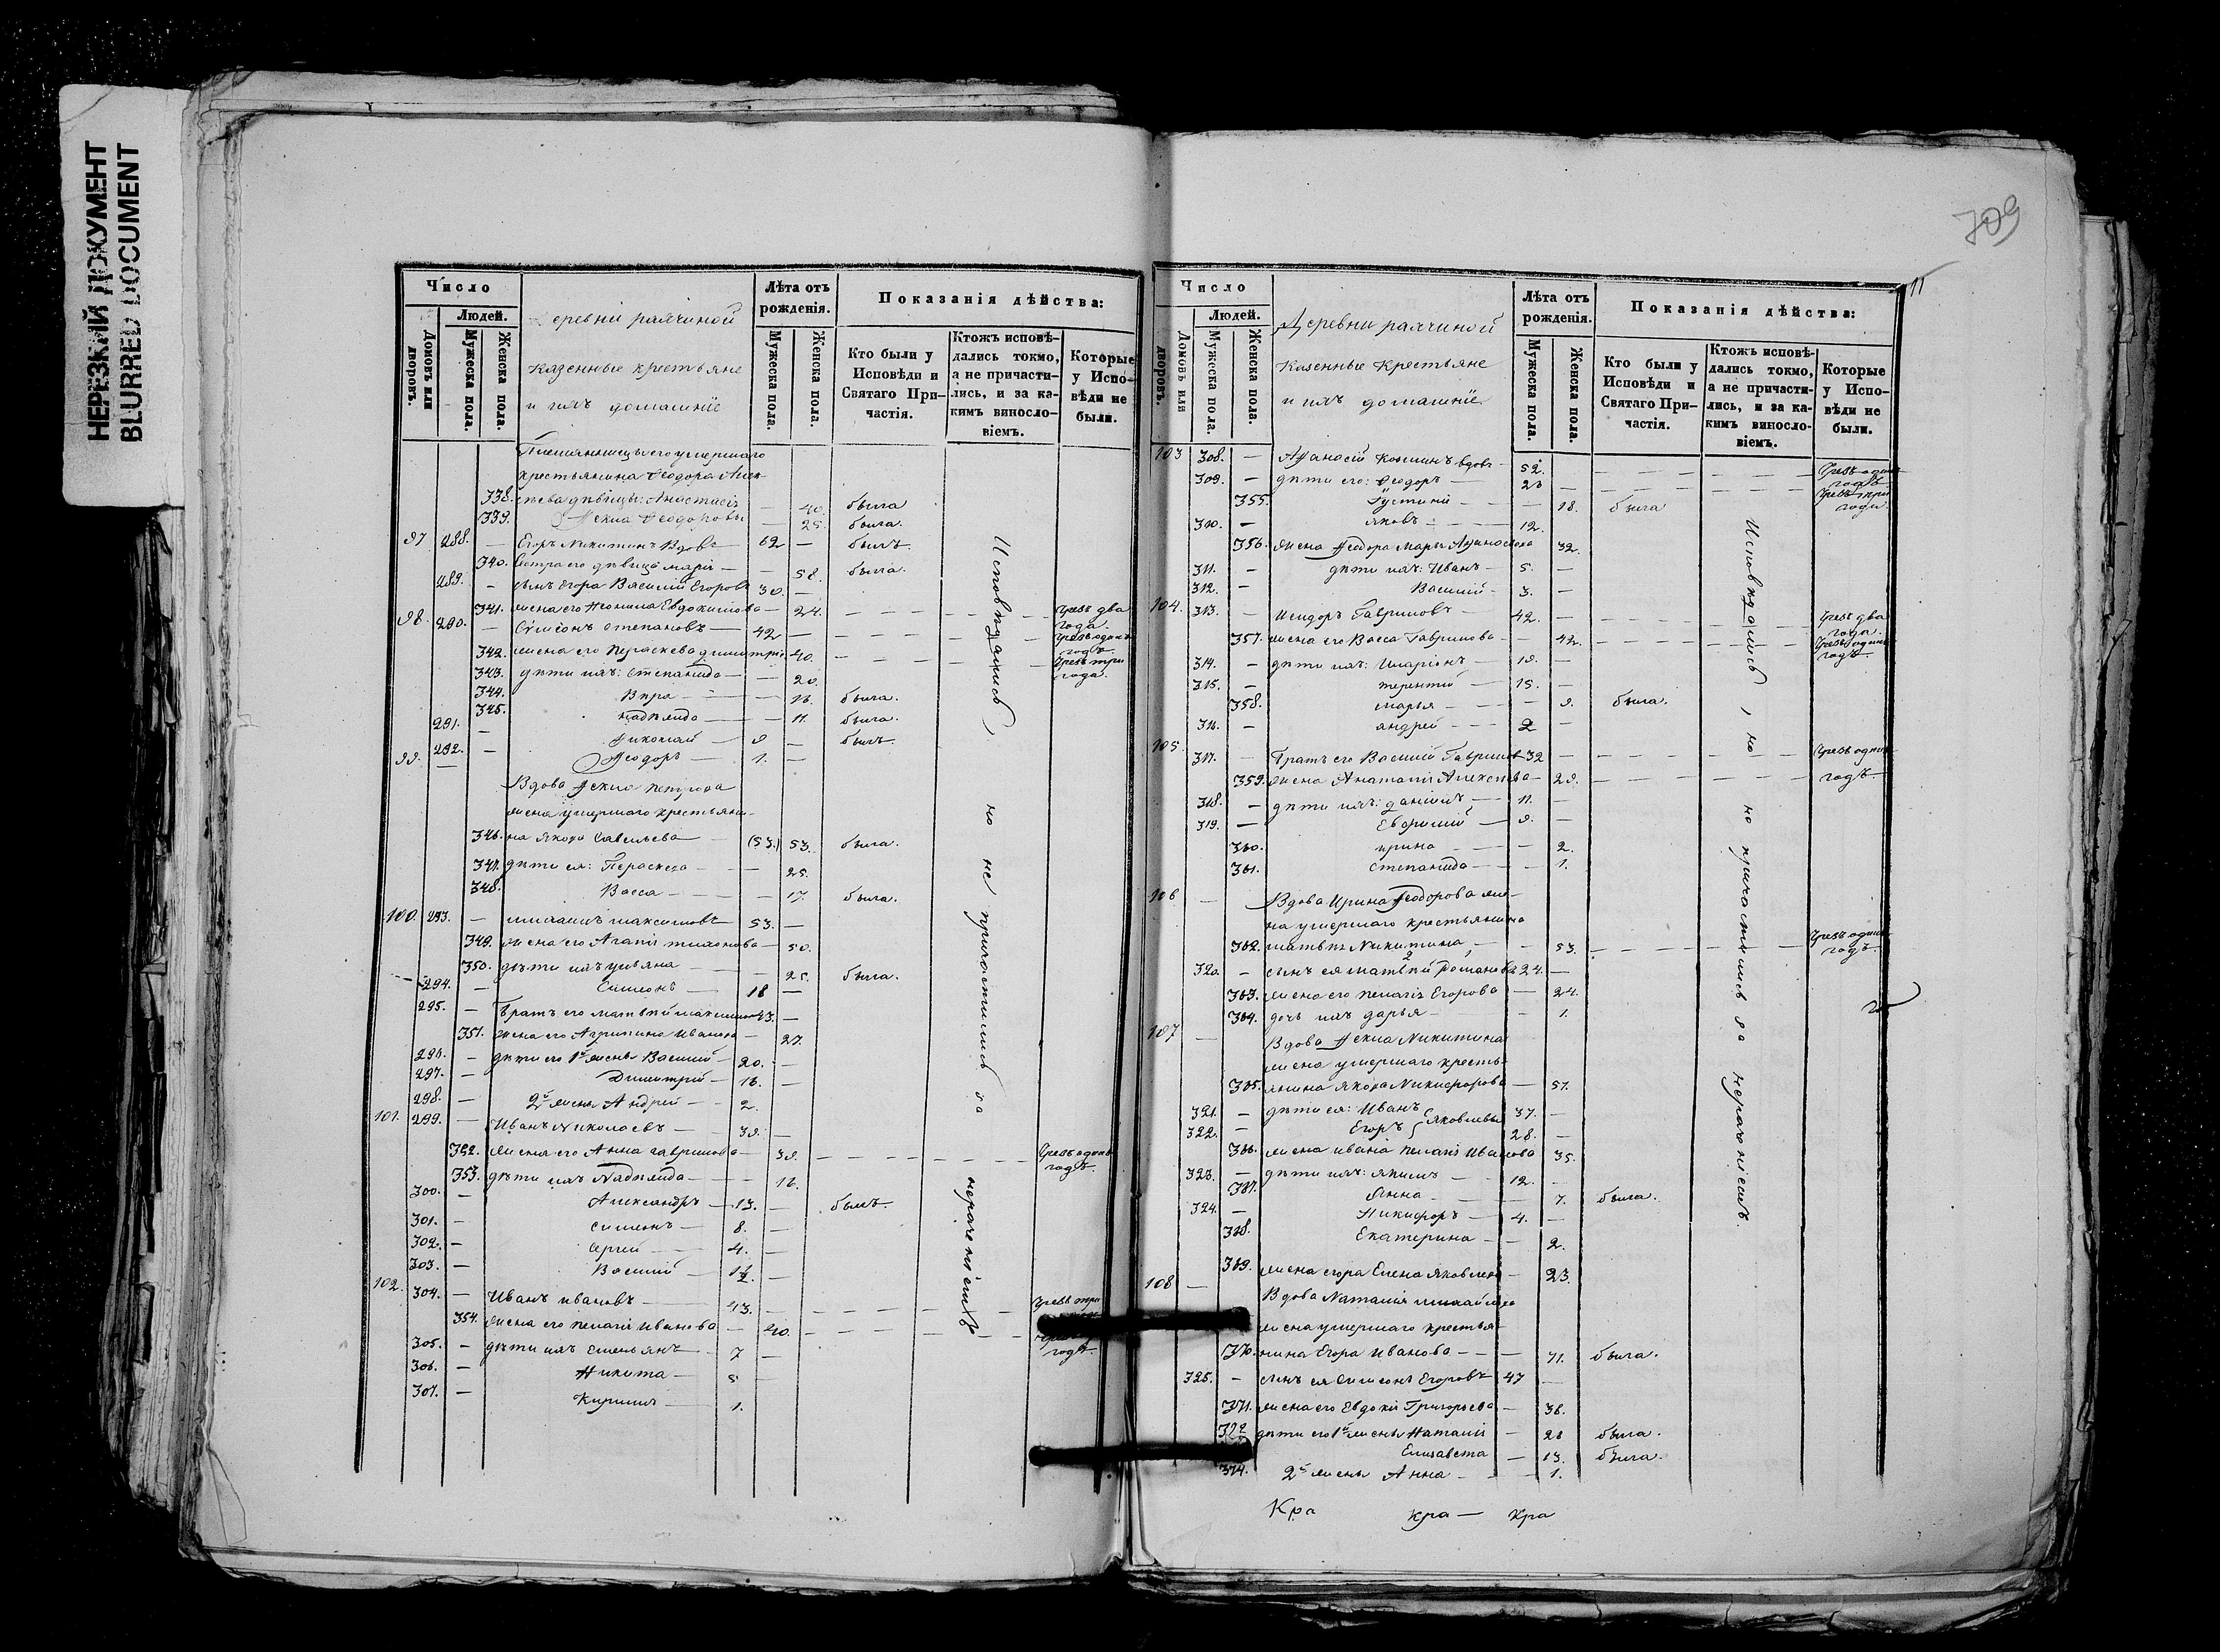 НЕРЕЗКИЙ ДОКУМЕНТ
BLURRED DOCUMENT
Число
Людей.
Домовъ или дворовъ.
Мужеска пола.
Женска пола.
деревни
казенные крестьяне
и ихъ домашніе
Лѣта отъ рожденія.
Мужеска пола.
Женска пола.
Показанія дѣйства:
Кто были у Исповѣди и Святаго Причастія.
Ктожъ исповѣдались токмо, а не причастились, и за какимъ винословіемъ.
Которые у Исповѣди не были.
его умершаго
крестьянина Ѳеодора
338. дѣвицы: Анастасія — 40. была
339. Ѳекла Ѳеодоровы — 25. была.
97 288. — Егоръ Никитинъ вдовъ — 62 — былъ
340. Сестра его дѣвица Марія — — 58. была.
289. — сынъ Егора Василій Егоровъ 30. —
341. жена его Неонила Евдокимова — 24. чрезъ два года.
98. 290. — Симеонъ Степановъ — 42 — чрезъ одинъ годъ
342. жена его Параскева 40. чрезъ три года.
343. дѣти ихъ: Степанида — — 20.
344. Вѣра — — 16. была.
345. Надежда — — 11. была.
291. — Николай — 9 — былъ
99. 292. — Ѳеодоръ — 1. —
Вдова Ѳекла Петрова
жена умершаго крестьяни-
346. на Якова Савельева — (53.) 53. была.
347. дѣти ея: Параскева — — 25.
348. Васса — — 17. была.
100. 293. — Михаилъ Максимовъ 53. —
349. жена его Агапія Тихонова — 50.
350. дѣти ихъ Ульяна — — 25. была.
294. — Симеонъ — 18 —
295. — Братъ его Матвѣй Максимовъ 43. —
351. жена его Агрипина Иванова — 27.
296. — дѣти его 1й жены Василій — 20. —
297. — Димитрій — 16. —
298. — 2й жены Андрей — 2.
101. 299. — Иванъ Николаевъ — 39. —
352. жена его Анна Гаврилова — 39. чрезъ одинъ годъ.
353. дѣти ихъ Надежда — — 16.
300. — Александръ — 13. — былъ
301. — Симеонъ — 8. —
302. — Сергей — 4. —
303. — Василій — 1½. —
102. 304. — Иванъ Ивановъ — 43. — чрезъ три
354. жена его Пелагія Иванова — 40. годъ.
305. — дѣти ихъ Емельянъ — 7 —
306. — Никита — 5 —
307. — Кирилъ — 1.
Исповѣдались, но не причастились за нераченіемъ
709
11
Число
Людей.
Домовъ или дворовъ.
Мужеска пола.
Женска пола.
Деревни
казенные крестьяне
и ихъ домашніе
Лѣта отъ рожденія.
Мужеска пола.
Женска пола.
Показанія дѣйства:
Кто были у Исповѣди и Святаго Причастія.
Ктожъ исповѣдались токмо, а не причастились, и за какимъ винословіемъ.
Которые у Исповѣди не были.
103 308. — Афанасій вдовъ — 52. чрезъ одинъ годъ
309. — дѣти его: Ѳеодоръ — 28 чрезъ три года.
355. — 18. была
310. — Яковъ — 12.
356. жена Ѳеодора Марья 32.
311. — дѣти ихъ: Иванъ — 5. —
312. — Василій — 3. —
104. 313. — Исидоръ Гавриловъ — 42. — чрезъ два года.
357. жена его Васса Гаврилова — 42. чрезъ одинъ годъ
314. — дѣти ихъ: Иларіонъ — 19. —
315. — Терентій — 15. —
358. Марья — — 9. была.
316. — Андрей — 2 —
105. 317. — Братъ его Василій Гавриловъ 32 — чрезъ одинъ
359. жена Анатолія Алексѣева — 29. годъ.
318. — дѣти ихъ: Даніилъ — 11. —
319. — Евфимій — 9. —
360. Ирина — — 2.
361. Степанида — — 1.
106 — Вдова Ирина Ѳеодорова же-
на умершаго крестьянина
362. Матвѣя Никитина — — 53. чрезъ одинъ годъ.
320. — сынъ ея Матвѣй Романовъ 24. —
363. жена его Пелагія Егорова — 24.
364. дочь ихъ Дарья — — 1.
107 — Вдова Ѳекла Никитина
жена умершаго кресть-
365. янина Якова Никифорова — 57.
321. — дѣти ея: Иванъ 37. —
322. — Егоръ } Яковлевы 28. —
366. жена Ивана Пелагія Иванова 35.
323. — дѣти ихъ: Якимъ — 12. —
367. Анна — — 7. была.
324. — Никифоръ — 4. —
368. Екатерина — — 2.
369. жена Егора Елена Яковлева — 23.
108 — Вдова Наталія Михайлова
жена умершаго крестья-
370. нина Егора Иванова — — 71. была.
325. — сынъ ея Симеонъ Егоровъ 47 —
371. жена его Евдокія Григорьева — 36.
372 дѣти его 1й жены Наталія — 28 была.
Елисавета — 13. была.
374. 2й жены Анна — — 1.
Исповѣдались, но не причастились за нераченіемъ.
Кра кра — кра